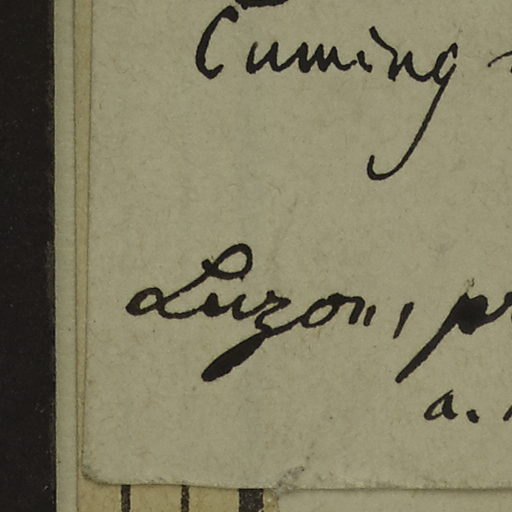 Cuming
Luzon, pr
a.